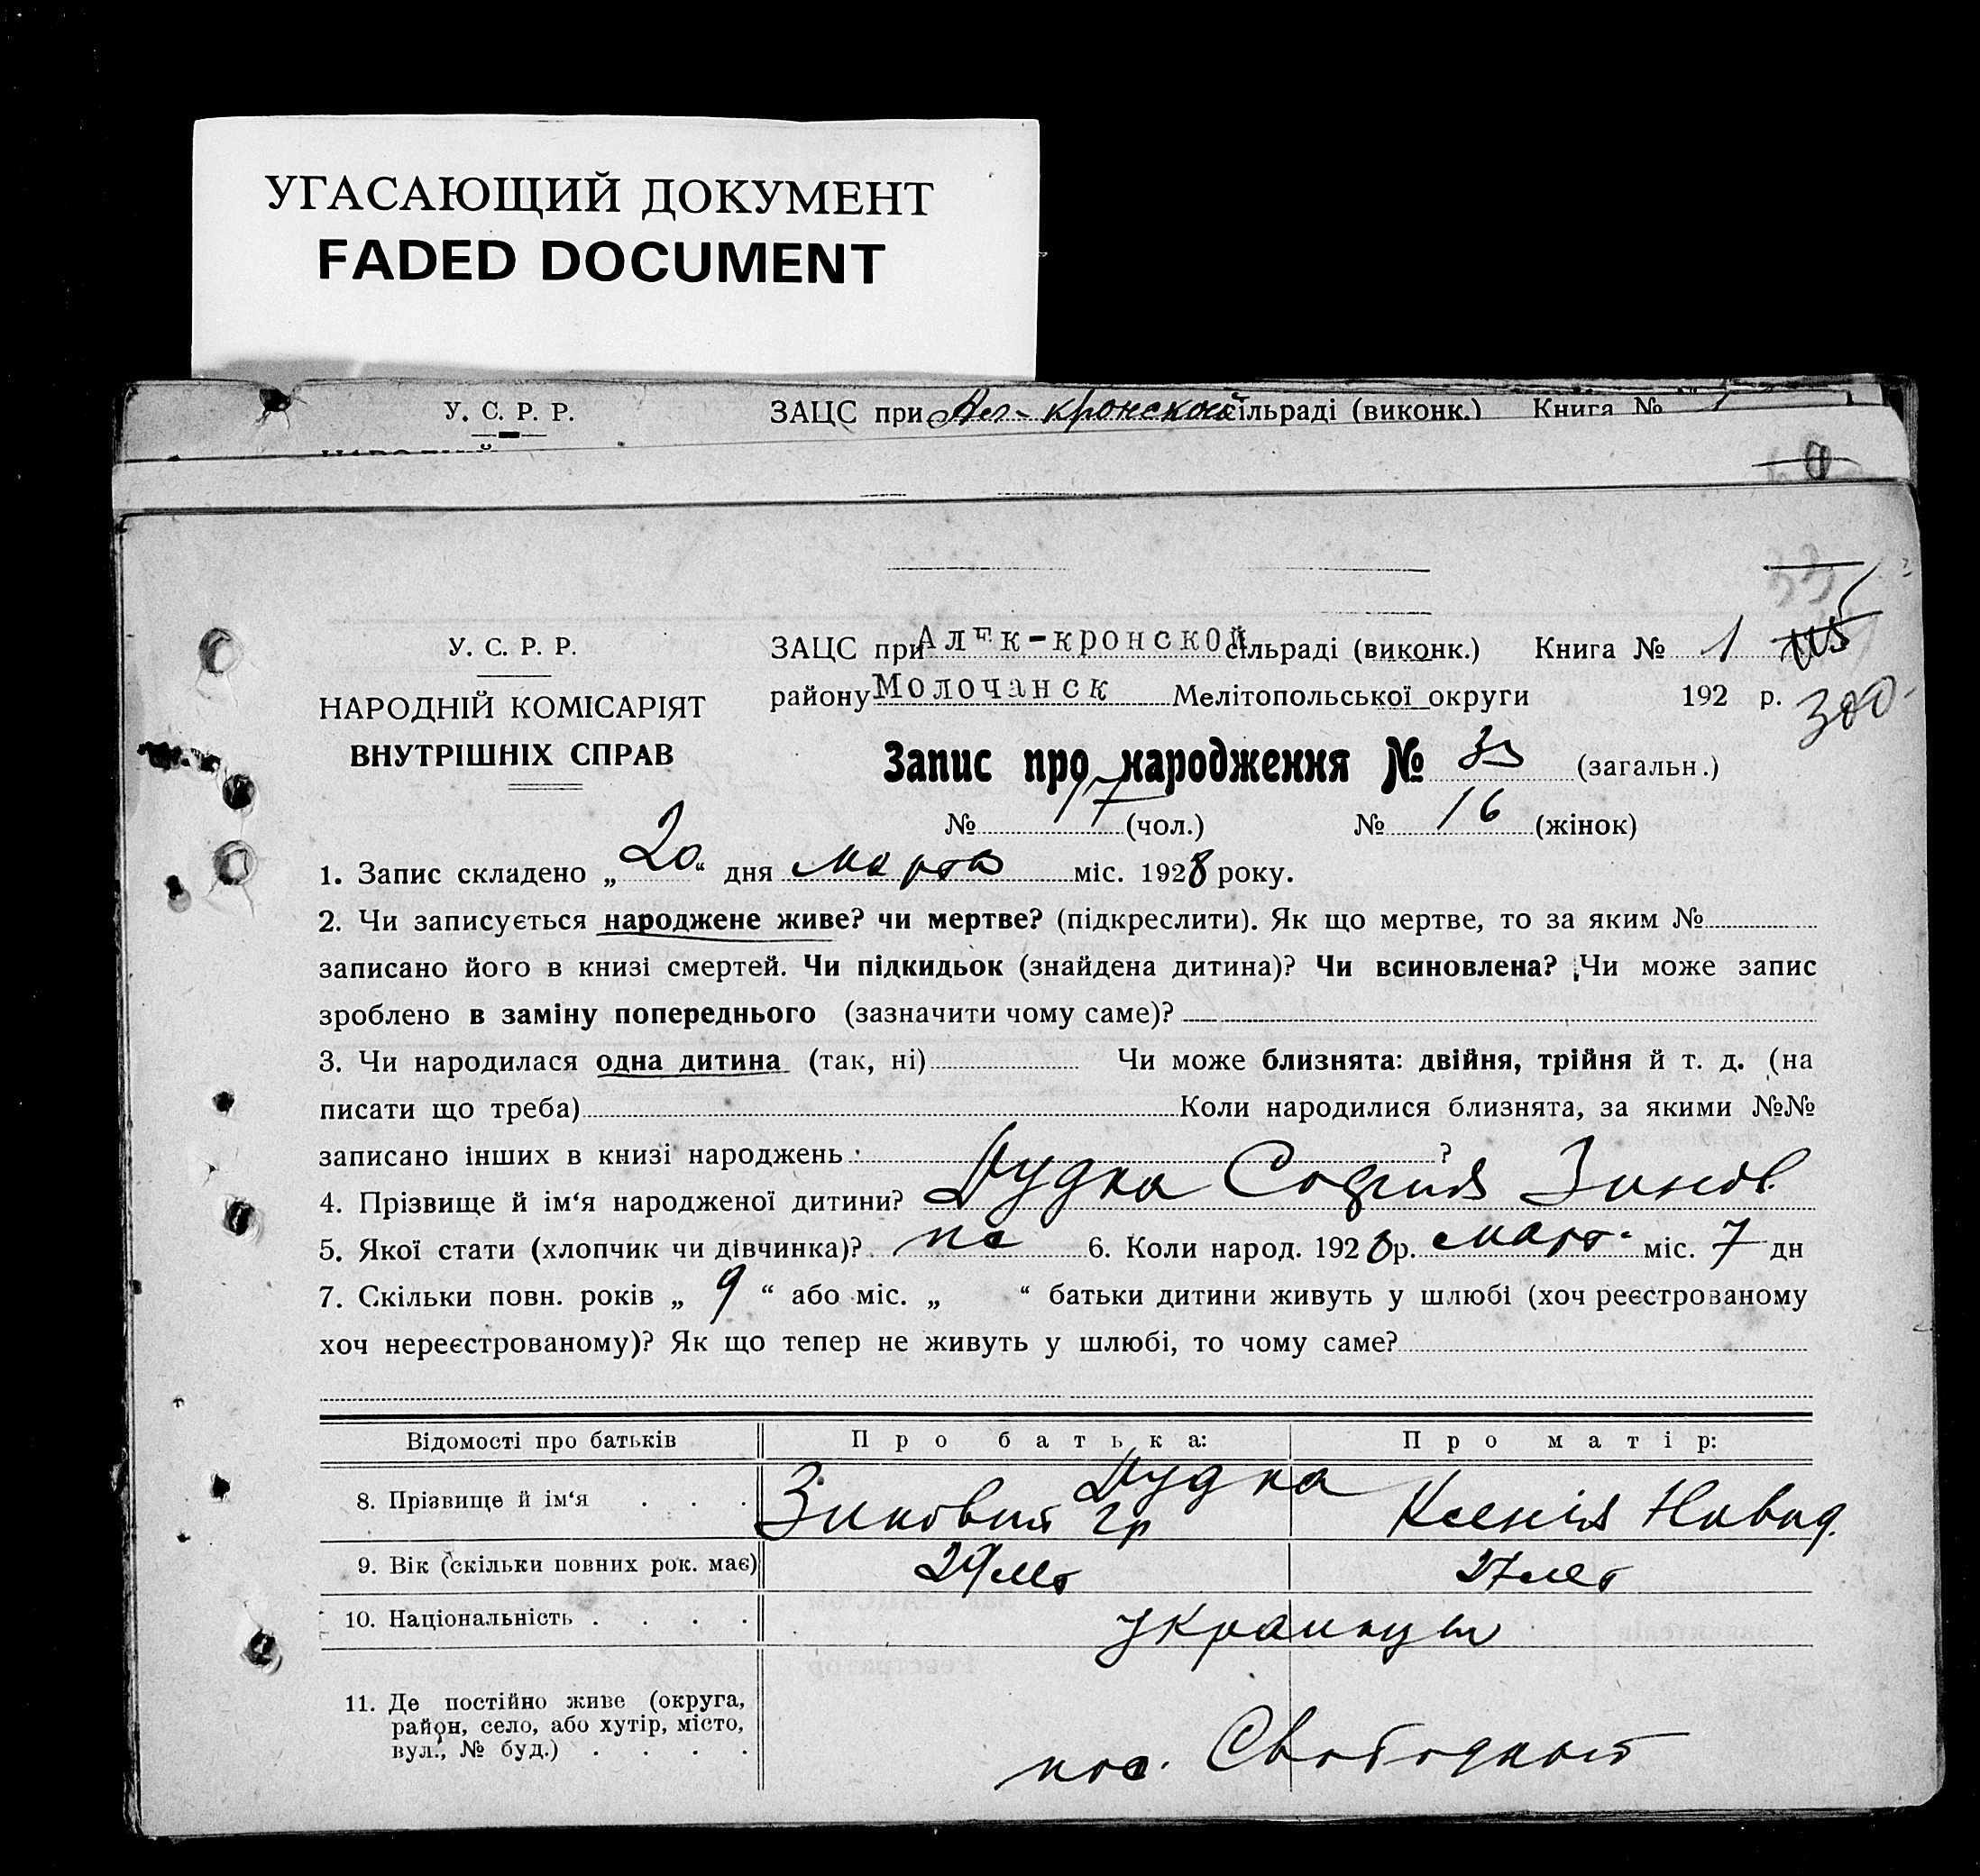 УГАСАЮЩИЙ ДОКУМЕНТ
FADED DOCUMENT
У. С. Р. Р. ЗАЦС при Ал-кронской сільраді (виконк.) Книга № 1
У. С. Р. Р. ЗАЦС при Алек-кронской сільраді (виконк.) Книга № 1
НАРОДНІЙ КОМІСАРІЯТ району Молочанск Мелітопольської округи 192 р. 300
ВНУТРІШНІХ СПРАВ Запис про народження № 33 (загальн.)
№ 17 (чол.) № 16 (жінок)
1. Запис складено „20“ дня марта міс. 1928 року.
2. Чи записується народжене живе? чи мертве? (підкреслити). Як що мертве, то за яким №
записано його в книзі смертей. Чи підкидьок (знайдена дитина)? Чи всиновлена? Чи може запис
зроблено в заміну попереднього (зазначити чому саме)?
3. Чи народилася одна дитина (так, ні) Чи може близнята: двійня, трійня й т. д. (на
писати що треба) Коли народилися близнята, за якими №№
записано інших в книзі народжень ?
4. Прізвище й ім‘я народженої дитини? Дудка София Зинов.
5. Якої стати (хлопчик чи дівчинка)? 6. Коли народ. 1928 р. март. міс. 7 дн
7. Скільки повн. років „ 9 “ або міс. „ “ батьки дитини живуть у шлюбі (хоч реєстрованому
хоч нереєстрованому)? Як що тепер не живуть у шлюбі, то чому саме?
Відомості про батьків Про батька: Про матір:
8. Прізвище й ім‘я . . . Дудка Зиновий Гр Ксенія
9. Вік (скільки повних рок. має) 29 лет 27 лет
10. Національність . . . . украинцы
11. Де постійно живе (округа,
район, село, або хутір, місто,
вул., № буд.) . . . . пос. Свободный